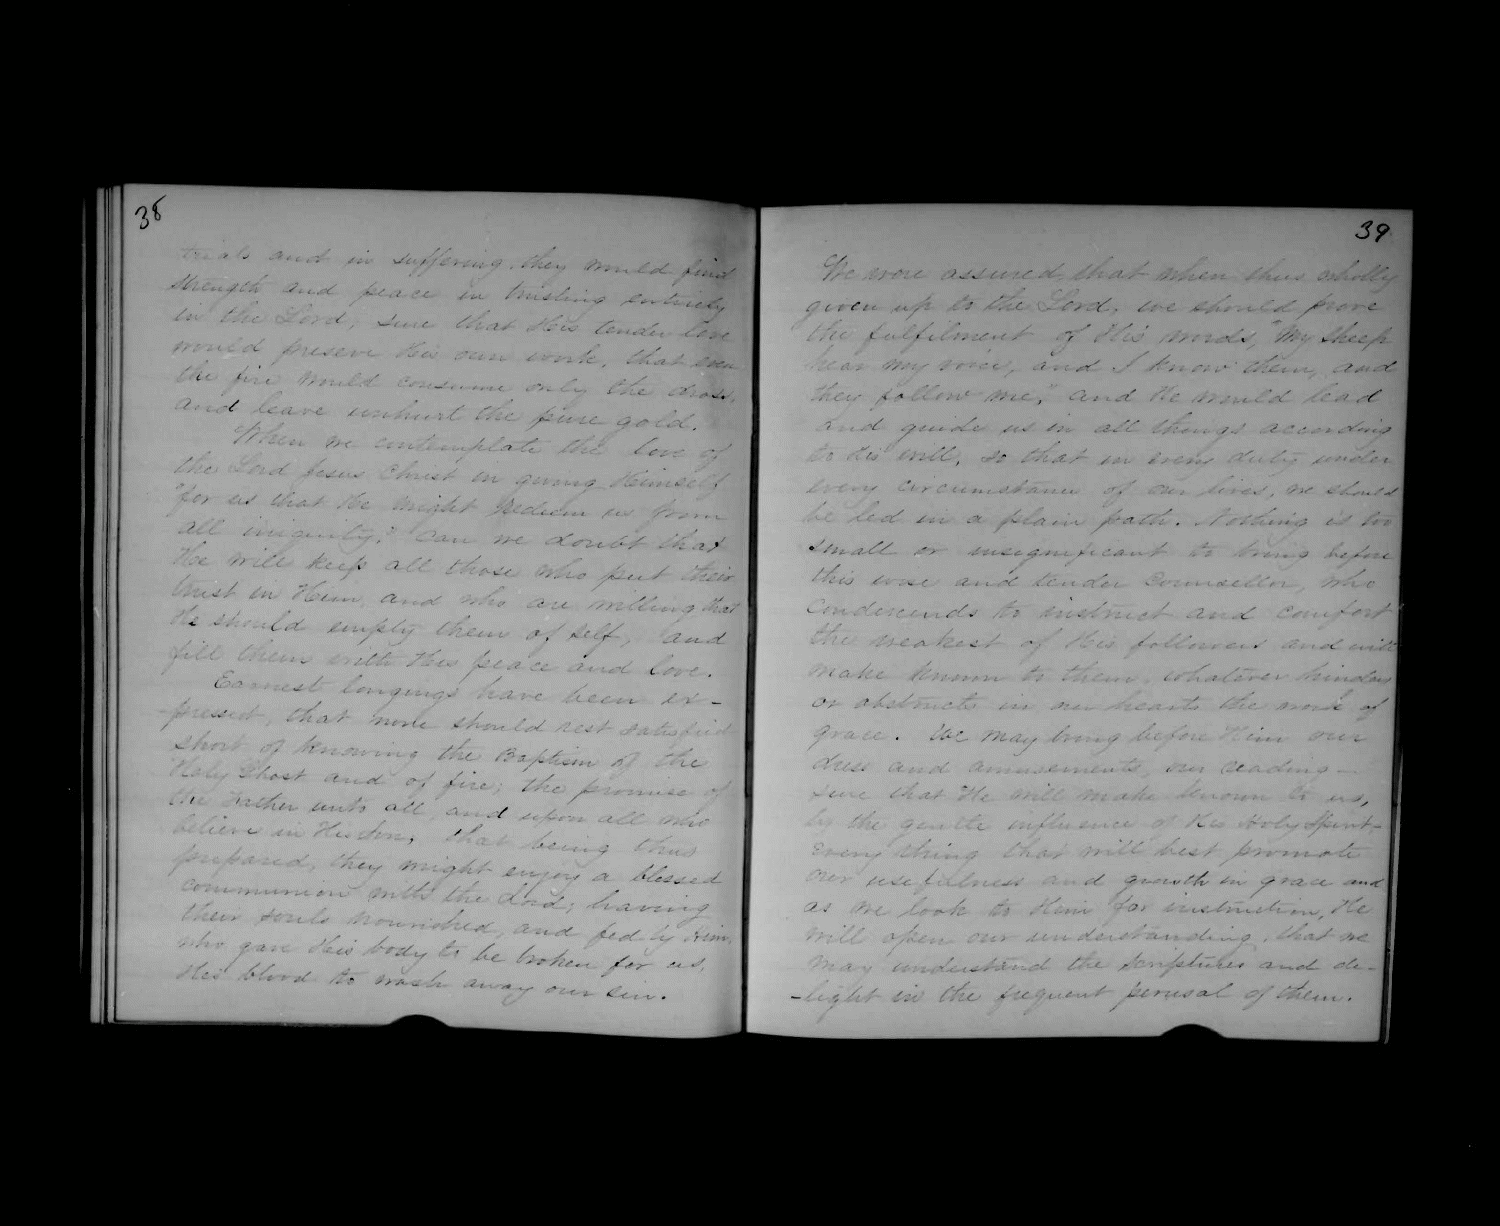 38
trials and in suffering, they would find
strength and peace in trusting entirely
in the Lord, sure that His tender love
would preserve His own work, that even
the fire would consume only the dross,
and leave unhurt the pure gold.
When we contemplate the love of
the Lord Jesus Christ in giving Himself
"for us that He might redeem us from
all iniquity." Can we doubt that
He will keep all those who put their
trust in Him, and who are willing that
He should empty them of self, and
fill them with His peace and love.
Earnest longings have been ex-
-pressed, that none should rest satisfied
short of knowing the Baptism of the
Holy Ghost and of fire; the promise of
the Father unto all, and upon all who
believe in His Son, that being thus
prepared, they might enjoy a blessed
communion with the Lord; having
their souls nourished, and fed by Him,
who gave His body to be broken for us,
His blood to wash away our sin.
39
We were assured that when thus wholly
given up to the Lord, we should prove
the fulfilment of His words, "My sheep
hear my voice, and I know them, and
they follow me," and He would lead
and guide us in all things according
to His will, so that in every duty under
every circumstance of our lives, we should
be led in a plain path. Nothing is too
small or insignificant to bring before
this wise and tender Counsellor, who
condescends to instruct and comfort
the weakest of His followers and will
make known to them, whatever hinders
or obstructs in our hearts the work of
grace. We may bring before Him our
dress and amusements, our reading—
sure that He will make known to us,
by the gentle influence of His Holy Spirit—
every thing that will best promote
our usefulness and growth in grace and
as we look to Him for instruction, He
will open our understanding, that we
may understand the Scriptures and de-
-light in the frequent perusal of them.